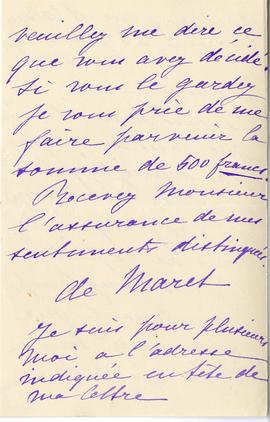 veuillez me dire ce
que vous avez décidé.
Si vous le gardez
je vous prie de me
faire parvenir la
somme de 500 francs.
Recevez Monsieur
l'assurance de mes
sentiments distingués.
de Maret
Je suis pour plusieurs
moi a l'adresse
indiquée en tête de
ma lettre